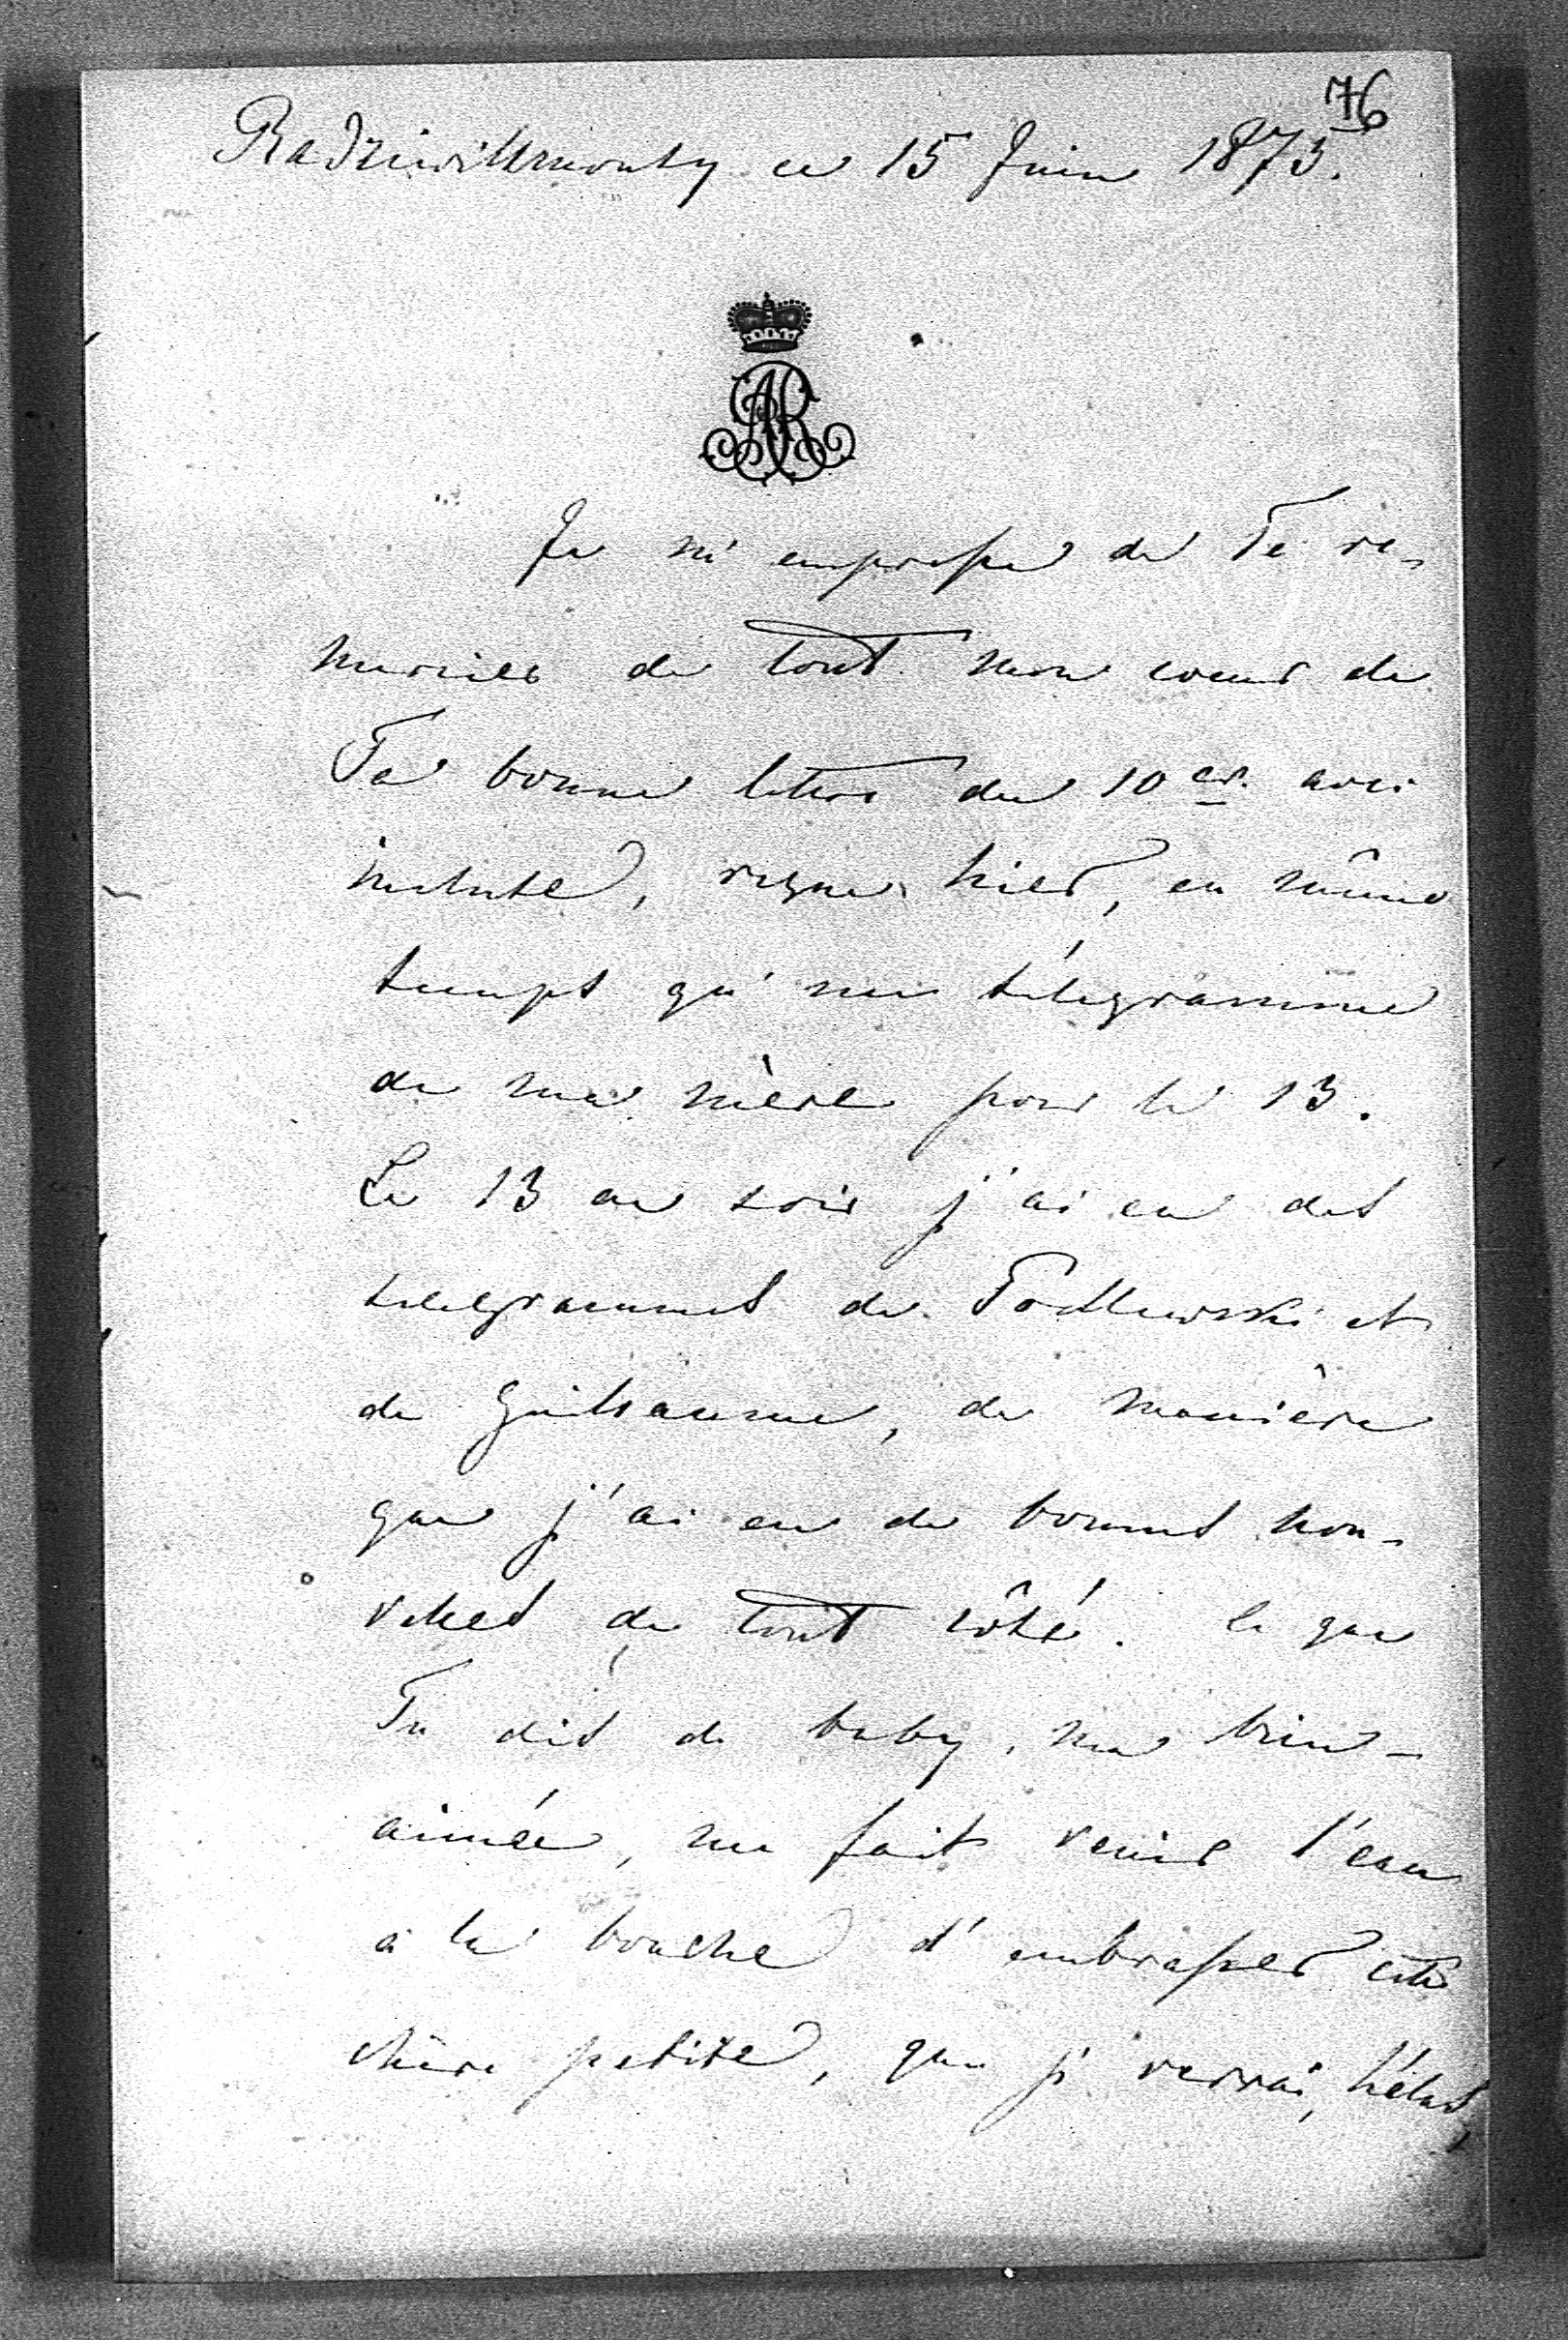 76
Radziwiłłmonty ce 15 Juin 1875.
AR
Je m'empresse de Te re-
mercier de tout mon cœur de
Ta bonne lettre du 10 cr. avec
incluse, reçue hier, en même
temps qu'un télégramme
de ma mère pour le 13.
Le 13 au soir j'ai eu des
telegrammes de et
de Guillaume, de manière
que j'ai eu de bonnes nou-
velles de tout côté. Ce que
Tu dis de baby, ma bien-
aimée, me fait venir l'eau
à la bouche d'embrasser cette
chère petite, que je verrai, hélas,